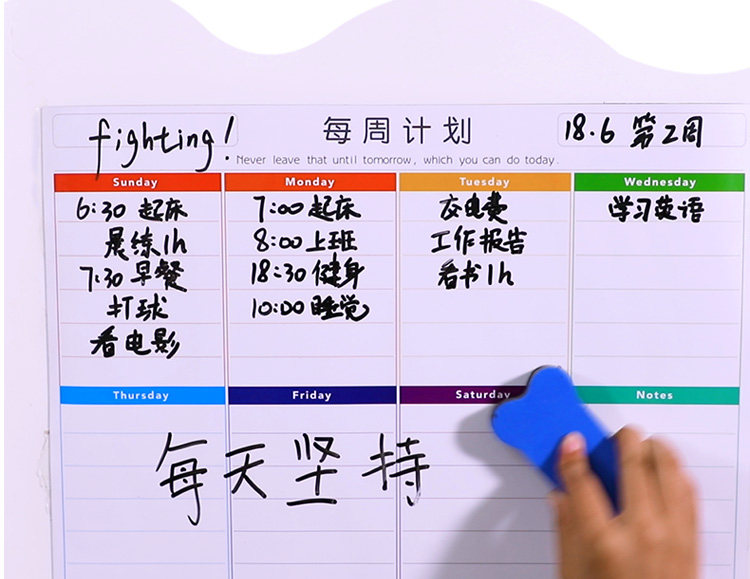 fighting!
每周计划
18.6 第2周
• Never leave that until tomorrow, which you can do today.
Sunday
6:30 起床
晨练1h
7:30 早餐
打球
看电影
Monday
7:00 起床
8:00 上班
18:30 健身
10:00 睡觉
Tuesday
交电费
工作报告
看书1h
Wednesday
学习英语
Thursday
Friday
Saturday
Notes
每天坚持